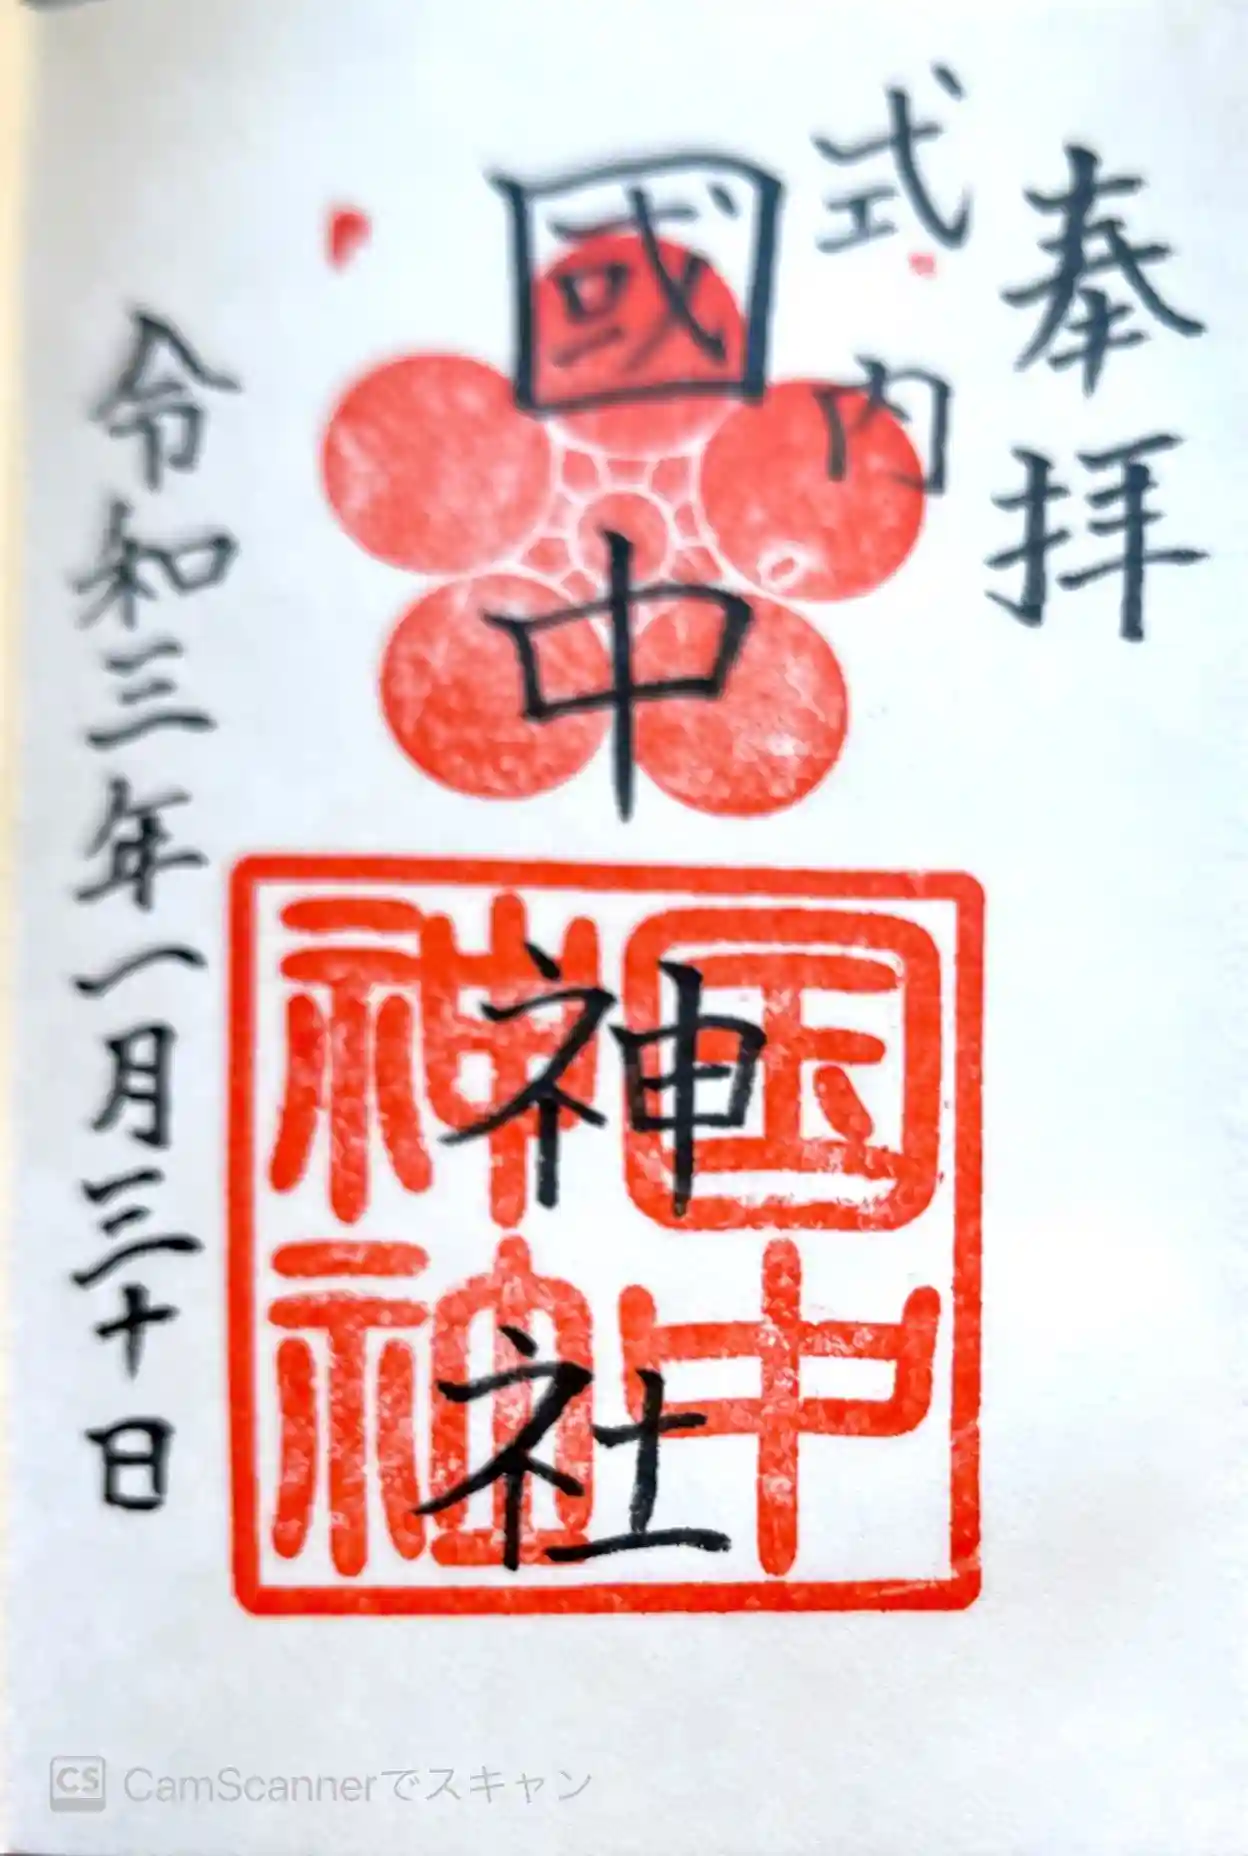 奉拝
式内
國中神社
国中
神社
令和三年一月三十日
CS CamScannerでスキャン